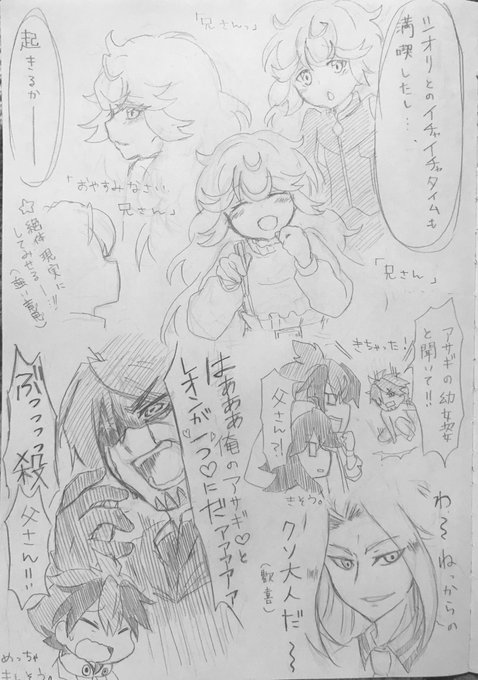 シオリとのイチャイチャタイムも
満喫したし…
「兄さんっ」
起きるかー
「おやすみなさい、
兄さん」
「兄さん」
☆絶体現実に
してみせるー!!
アサギの幼女姿
と聞いて!!
きちゃった!
父さん?!
きそう。
わ〜ねっからの
クソ大人だ〜
(歓喜)
はぁああ俺のアサギ♡と
レオンが一つ♡にだァァァァァ
ぶっっっっ殺
父さん!!
めっちゃ
きしそう。